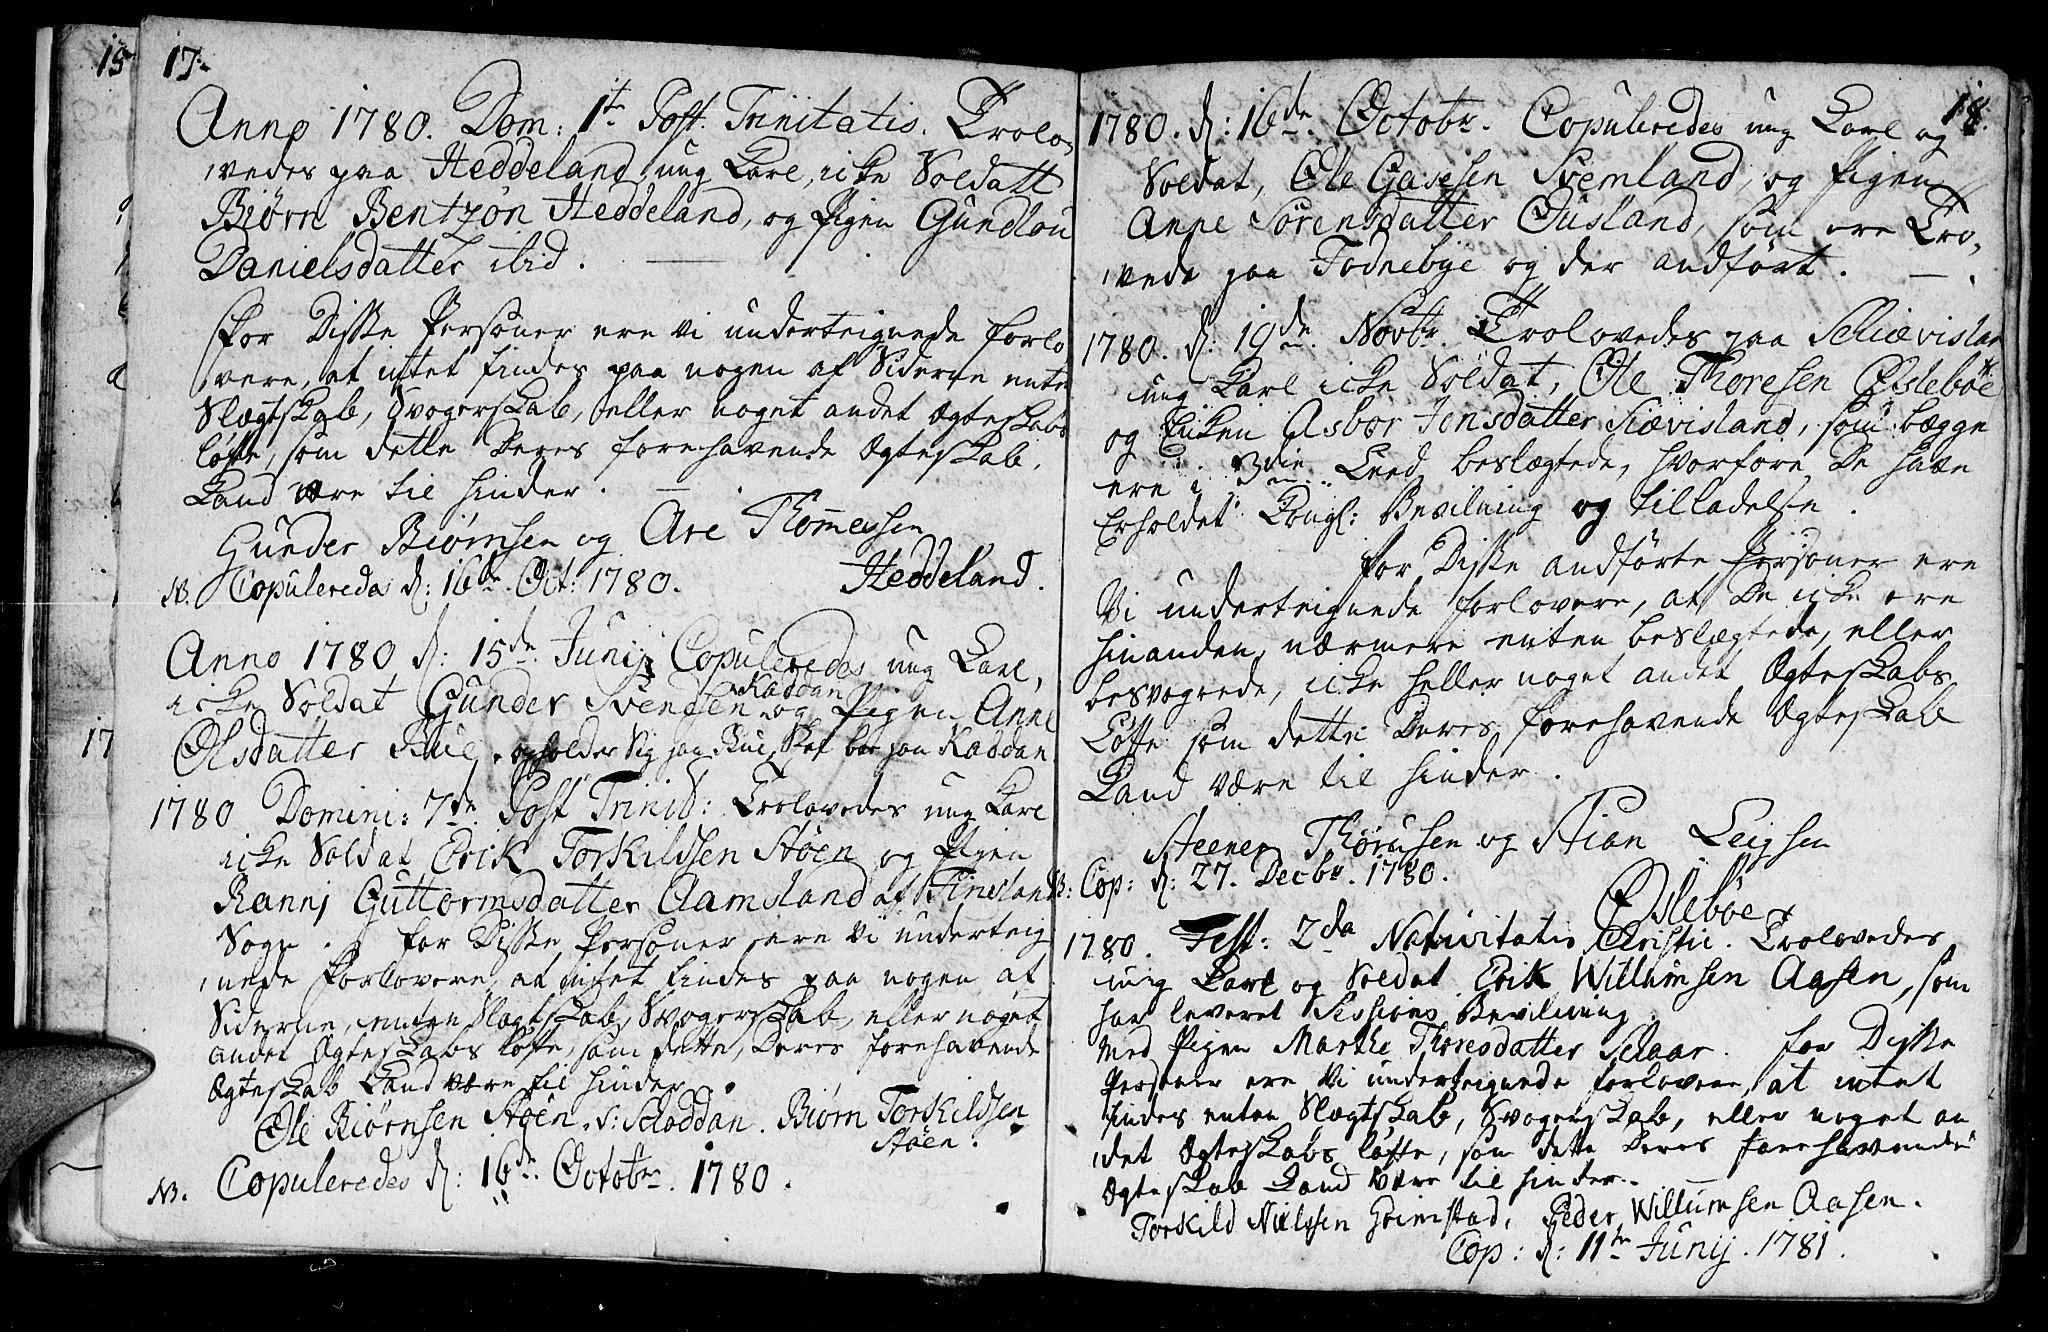 15
17.
Anno 1780. Dom: 1te Post. Trinitatis. Trolo,
vedes paa Heddeland ung Karl, icke Soldatt
Biørn Bentzøn Heddeland, og Pigen Gundlou
Danielsdatter ibid.
For Disse Personer ere vi underteignede forlo
vere, at intet findes paa nogen af Siderne enten
Slægtskab, Svogerskab, eller noget andet Ægteskabs
løfte, som dette Deres forehavende Ægteskab,
Kand være til hinder.
Gunder Biørnsen og Are Thommessen
Heddeland.
N. Copuleredes d: 16de Oct: 1780.
Anno 1780 d: 15de Junij Copuleredes ung Karl,
icke Soldat Gunder Svendsen Kaddan og Pigen Anne
Olsdatter Rue, opholder Sig paa Rue, skal boe paa Kaddan.
17
1780 Domini: 7de Post Trinit: Trolovedes ung Karl
icke Soldat Erik Torkildsen Støen og Pigen
Rannj Guttormsdatter Aamsland af Finsland
Sogn. For Disse Personer ere Vi underteig
nede Forlovere, at intet findes paa nogen af
Siderne, enten Slægtskab, Svogerskab, eller noget
andet Ægteskabs løfte, som dette, Deres forehavende
Ægteskab Kand være til hinder.
Ole Biørnsen Støen. Biørn Torkildsen
Støen.
NB. Copuleredes d: 16de Octobr. 1780.
18.
1780. d: 16de Octobr. Copuleredes ung Karl og
Soldat, Ole Gasesen Svemland, og Pigen
Anne Sørensdatter Øusland, som ere Tro,
vede paa Todnebye og der andført.
1780. d: 19de Novbr. Trolovedes paa Schiævisland
ung Karl icke Soldat, Ole Thoresen Øslebøe
og Enken Asbor Jensdatter Siævisland, som begge
ere i 3die Leed beslægtede, hvorfore De have
Erholdet Kongl: Bevilning og tilladelse.
For Disse andførte Personer ere
Vi underteignede forlovere, at De icke ere
hinanden nærmere enten beslægtede, eller
besvogrede, icke heller noget andet Ægteskabs
Løfte som dette Deres forehavende Ægteskab
Kand være til hinder.
Steener Thorusen og Stian Leigsen
Øslebøe
NB: Cop: d: 27. Decbr. 1780.
1780. Fest: 2da Nativitatis Christi. Trolovedes
ung Karl og Soldat Erik Willumsen Aasen, som
har leveret Sessions Bevilning.
Med Pigen Marthe Thoresdatter Schaar. For Disse
Personer ere Vi underteignede forlovere, at intet
findes enten Slægtskab, Svogerskab, eller noget an
det Ægteskabs løfte, som dette Deres forehavende
Ægteskab Kand være til hinder.
Torkild Nielssen Grimstad, Peder Willumsen Aasen.
Cop: d: 11te Junij. 1781.